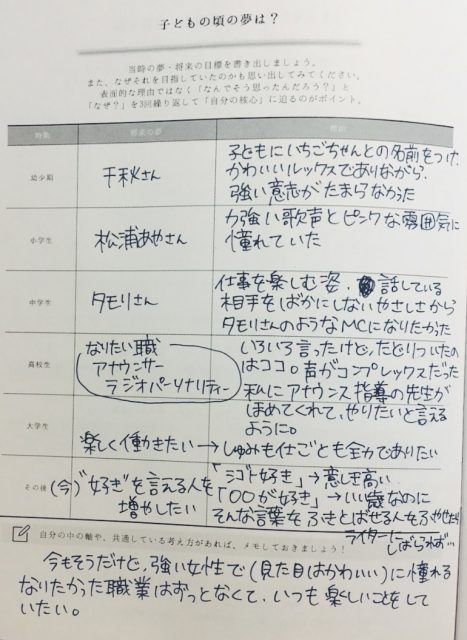 子どもの頃の夢は？
当時の夢・将来の目標を書き出しましょう。
また、なぜそれを目指していたのかも思い出してみてください。
表面的な理由ではなく「なんでそう思ったんだろう？」と
「なぜ？」を3回繰り返して「自分の核心」に迫るのがポイント。
時期 将来の夢 理由
幼少期
千秋さん
子どもにいちごちゃんとの名前をつけ、
かわいいルックスでありながら、
強い意志がたまらなかった
小学生
松浦あやさん
力強い歌声とピンクな雰囲気に
憧れていた
中学生
タモリさん
仕事を楽しむ姿、話している
相手をばかにしないやさしさから
タモリさんのようなMCになりたかった
高校生
なりたい職
アナウンサー
ラジオパーソナリティー
いろいろ言ったけど、たどりついたの
はココ。声がコンプレックスだった
私にアナウンス指導の先生が
ほめてくれて、やりたいと言える
ように。
大学生
楽しく働きたい→しゅみも仕ごとも全力でありたい
その後
(今)"好き"を言える人を
増やしたい
「シゴト好き」→意しき高い
「〇〇が好き」→いい歳なのに
そんな言葉をふきとばせる人をふやせたら
ライターにしばられず…
自分の中の軸や、共通している考え方があれば、メモしておきましょう！
今もそうだけど、強い女性で(見た目はかわいい)に憧れる
なりたかった職業はずっとなくて、いつも楽しいことをして
いたい。